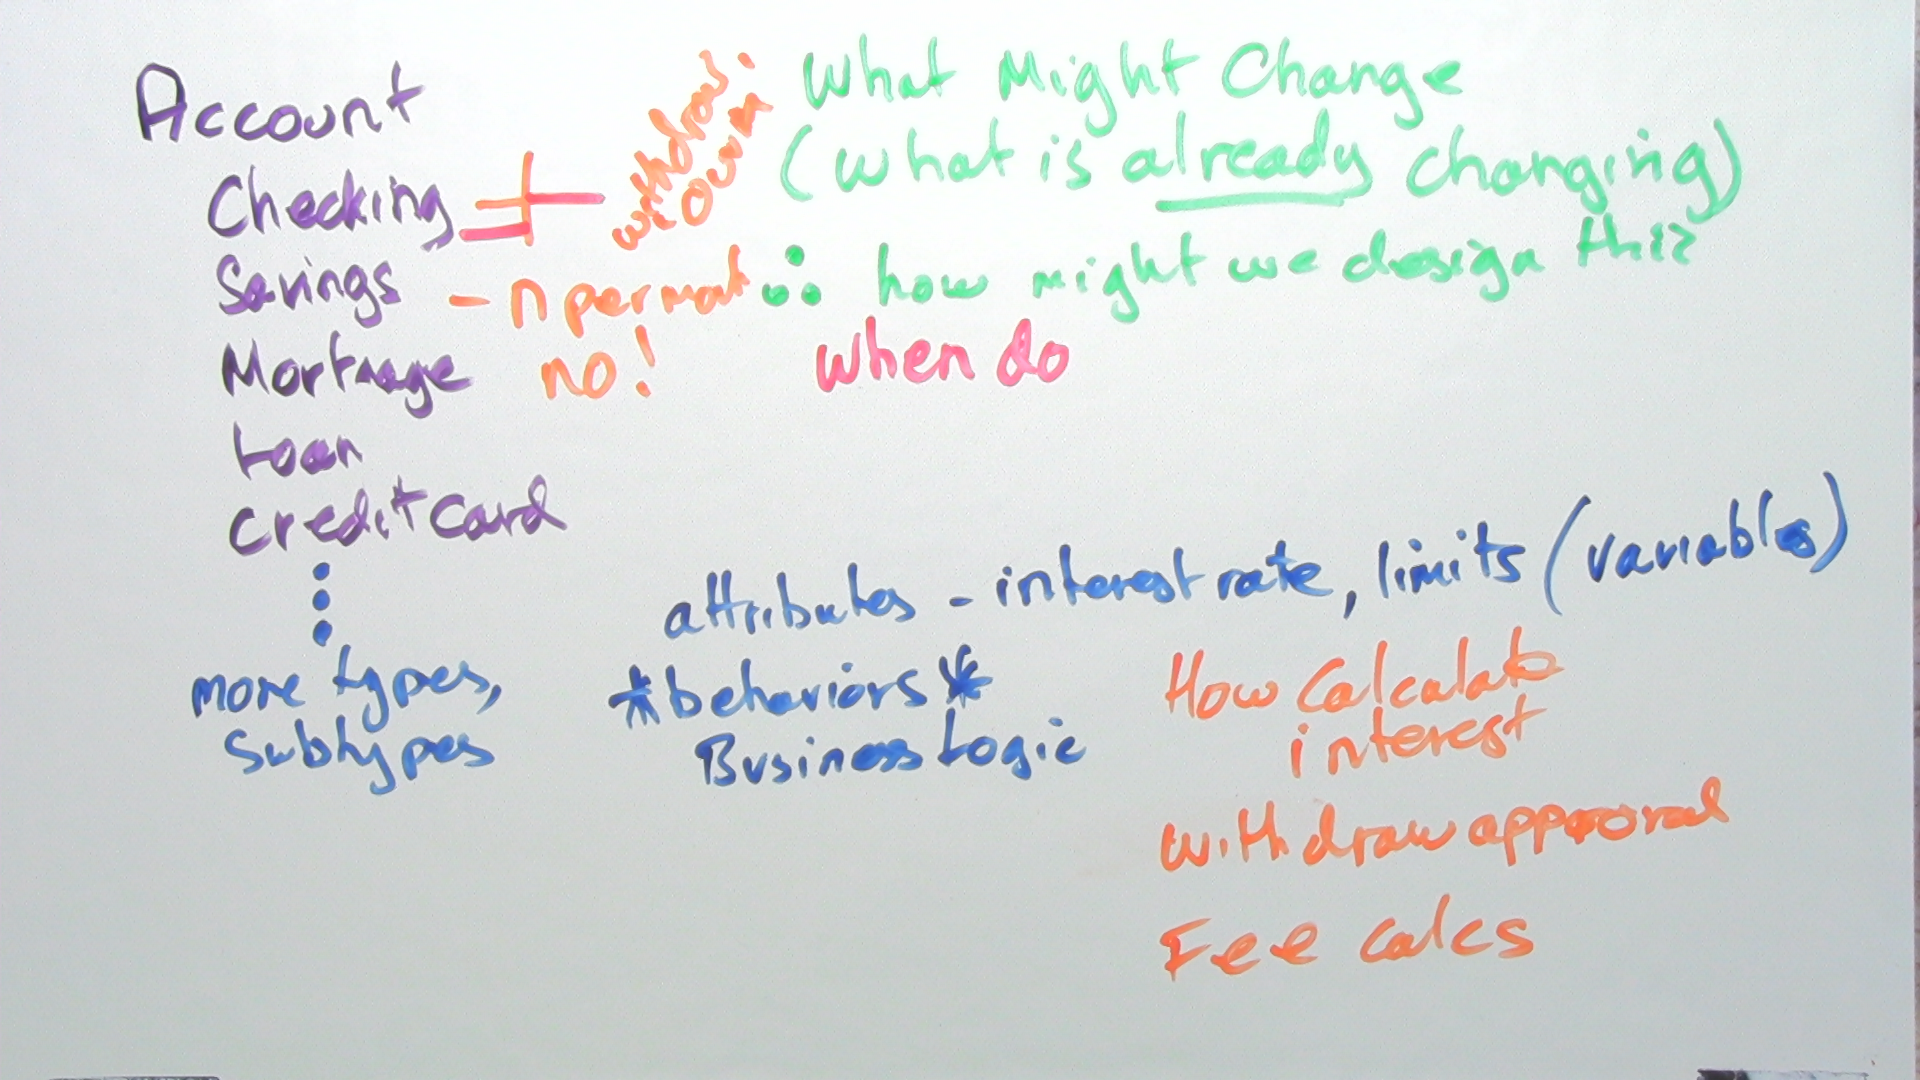 Account
Checking
Savings - n per mont
Mortgage no!
Loan
Credit Card
more types,
Subtypes
withdraw
What Might Change
(What is already changing)
∴ how might we design this?
When do
attributes - interest rate, limits (variables)
*behaviors*
Business Logic
How Calculate
interest
withdraw approval
Fee Calcs